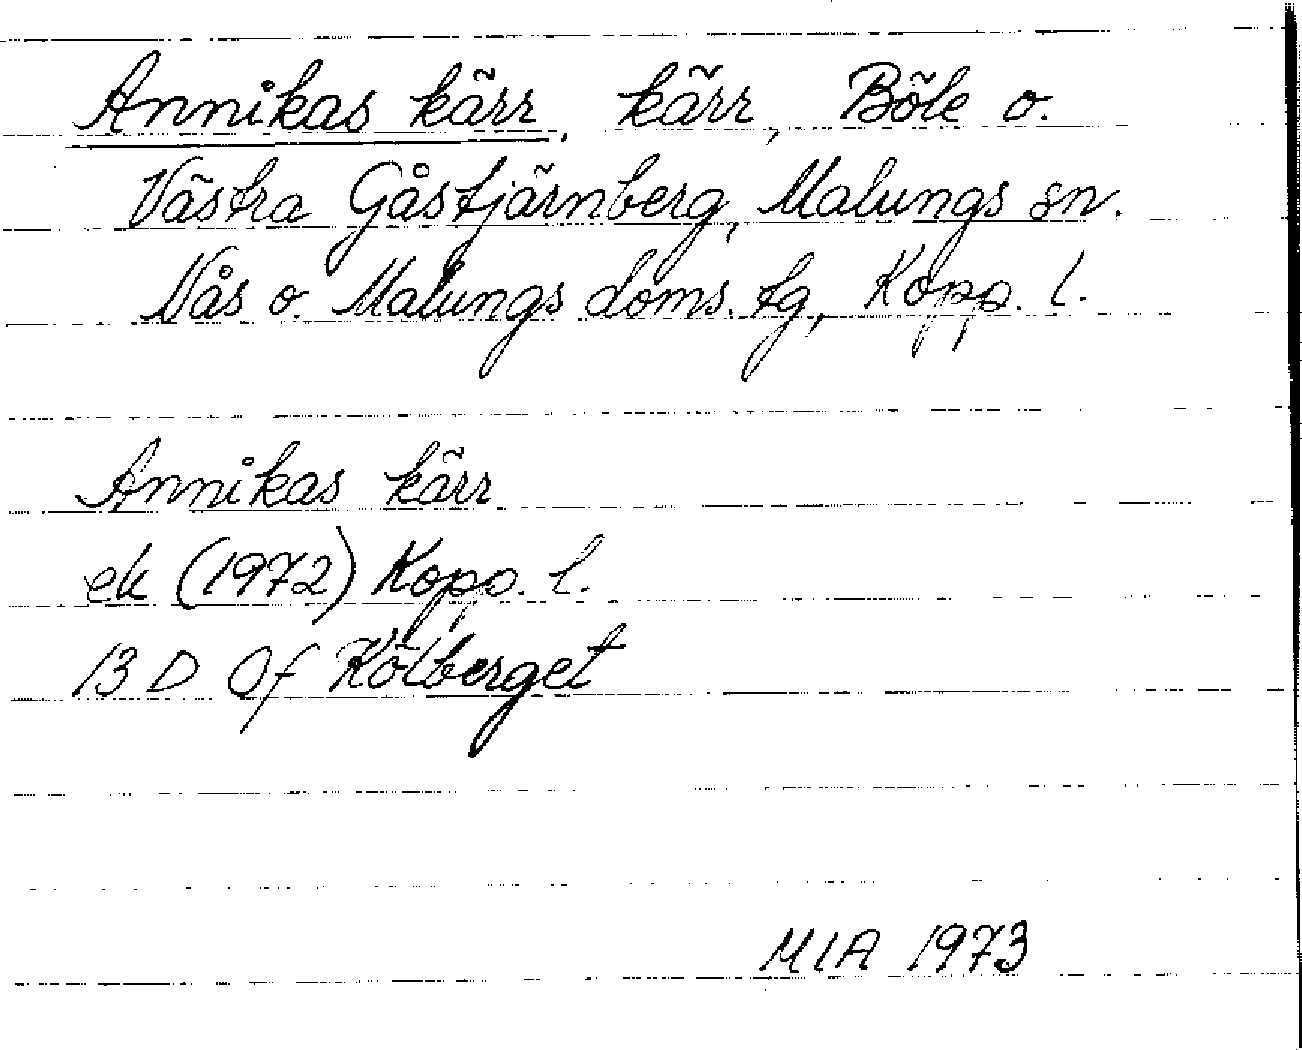 Annikas kärr, kärr, Böle o.
Västra Gåstjärnberg, Malungs sn.
Nås o. Malungs doms. tg, Kopp. l.
Annikas kärr
ek (1972) Kopp. l.
13 D 0f Kölberget
MIA 1973